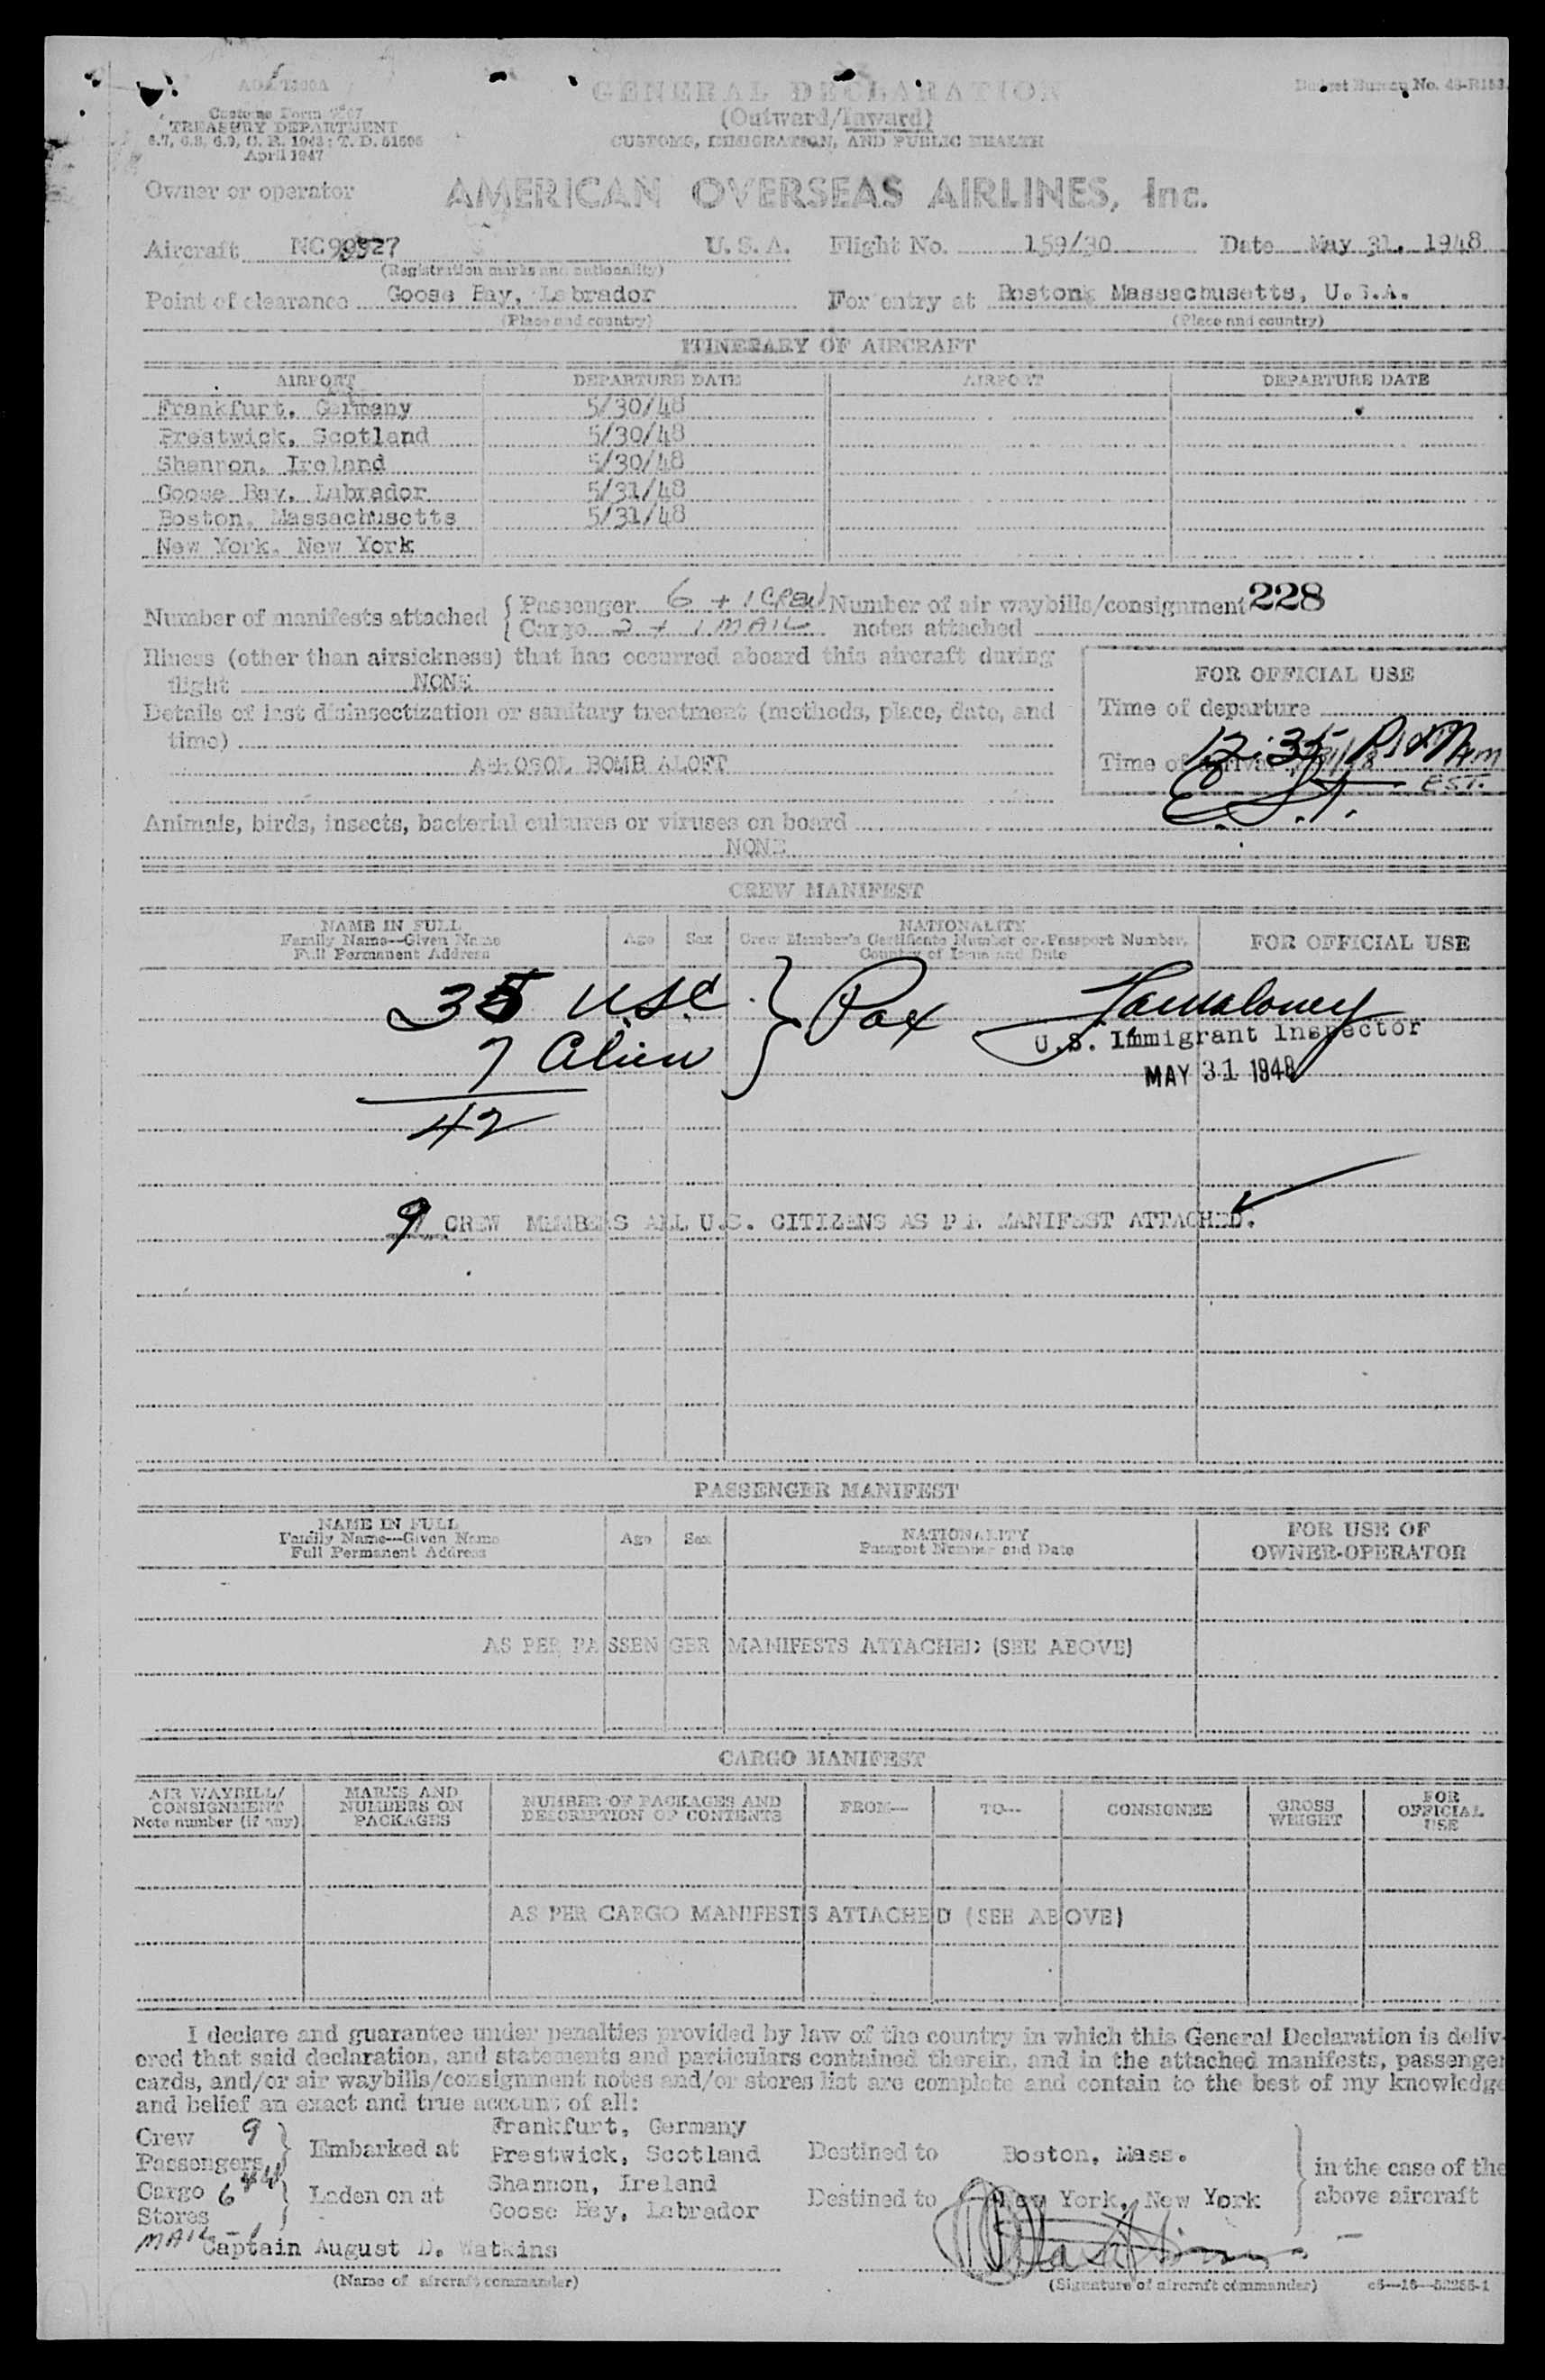 GENERAL DECLARATION
(Outward/Inward)
CUSTOMS, IMMIGRATION, AND PUBLIC HEALTH
Budget Bureau No.
Customs Form
TREASURY DEPARTMENT
April 1947
Owner or operator AMERICAN OVERSEAS AIRLINES, Inc.
Aircraft U. S. A. Flight No. 159/30 Date May 31, 1948
(Registration marks and nationality)
Point of clearance Goose Bay, Labrador For entry at Boston, Massachusetts, U.S.A.
(Place and country) (Place and country)
ITINERARY OF AIRCRAFT
AIRPORT DEPARTURE DATE AIRPORT DEPARTURE DATE
Frankfurt, Germany 5/30/48
Prestwick, Scotland 5/30/48
Shannon, Ireland 5/30/48
Goose Bay, Labrador 5/31/48
Boston, Massachusetts 5/31/48
New York, New York
Number of manifests attached { Passenger 6 + 1 CREW Number of air waybills/consignment 228
Cargo 2 + 1 MAIL notes attached
Illness (other than airsickness) that has occurred aboard this aircraft during
flight NONE
FOR OFFICIAL USE
Details of last disinsectization or sanitary treatment (methods, place, date, and
time)
AEROSOL BOMB ALOFT
Time of departure
Time of arrival 12:35
E.S.T.
EST.
Animals, birds, insects, bacterial cultures or viruses on board
NONE
CREW MANIFEST
NAME IN FULL
Family Name—Given Name
Full Permanent Address
Age Sex
NATIONALITY
Crew Member's Certificate Number or Passport Number,
Country of Issue and Date
FOR OFFICIAL USE
35 USC } Pax
7 Alien
42
U.S. Immigrant Inspector
MAY 31 1948
9 CREW MEMBERS ALL U.S. CITIZENS AS PER MANIFEST ATTACHED.
PASSENGER MANIFEST
NAME IN FULL
Family Name—Given Name
Full Permanent Address
Age Sex
NATIONALITY
Passport Number and Date
FOR USE OF
OWNER-OPERATOR
AS PER PASSENGER MANIFESTS ATTACHED (SEE ABOVE)
CARGO MANIFEST
AIR WAYBILL/
CONSIGNMENT
Note number (if any)
MARKS AND
NUMBERS ON
PACKAGES
NUMBER OF PACKAGES AND
DESCRIPTION OF CONTENTS
FROM— TO— CONSIGNEE
GROSS
WEIGHT
FOR
OFFICIAL
USE
AS PER CARGO MANIFESTS ATTACHED (SEE ABOVE)
I declare and guarantee under penalties provided by law of the country in which this General Declaration is deliv-
ered that said declaration, and statements and particulars contained therein, and in the attached manifests, passenger
cards, and/or air waybills/consignment notes and/or stores list are complete and contain to the best of my knowledge
and belief an exact and true account of all:
Crew 9 Frankfurt, Germany
Passengers } Embarked at Prestwick, Scotland Destined to Boston, Mass. in the case of the
Cargo 6 } Laden on at Shannon, Ireland Destined to New York, New York above aircraft
Stores Goose Bay, Labrador
MAIL - 1
Captain August D. Watkins
(Name of aircraft commander) (Signature of aircraft commander)